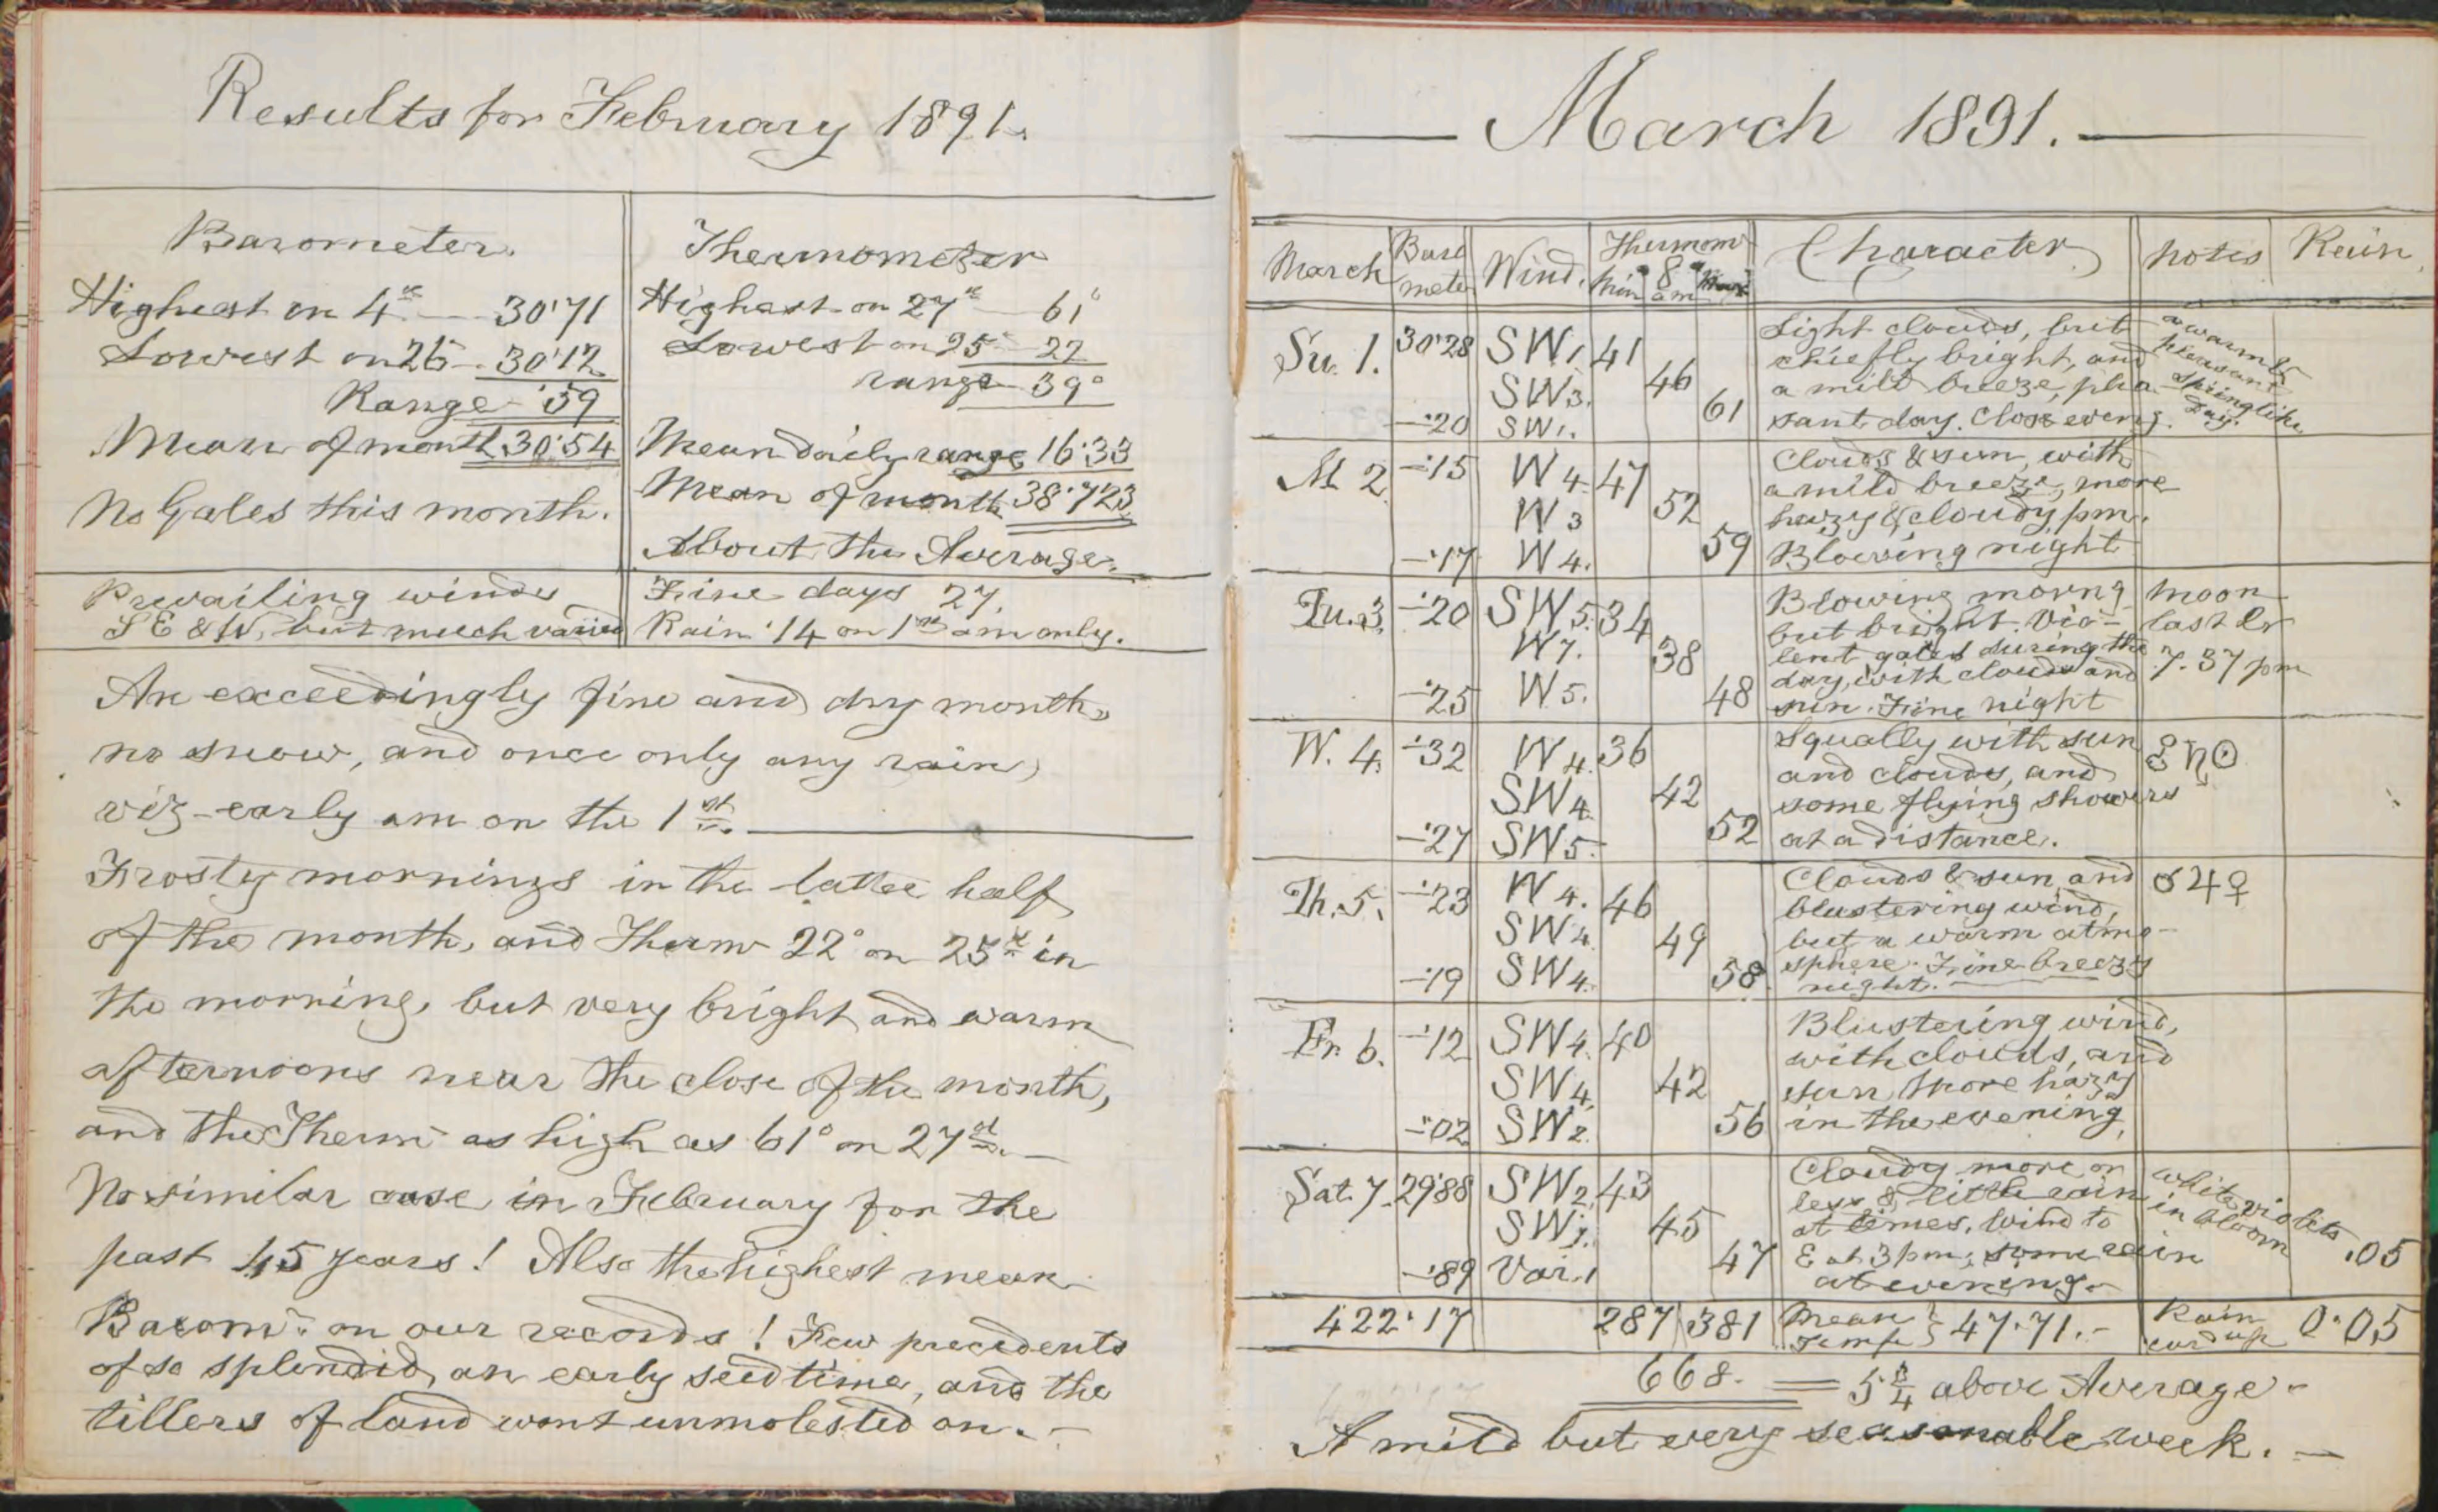 Results for February 1891.
Barometer.
Highest on 4th — 30·71
Lowest on 26 — 30·12
Range ·59
Mean of month 30·54
No Gales this month.
Thermometer
Highest on 27th 61°
Lowest on 25 22
range 39°
Mean daily range 16·33
Mean of month 38·723
About the Average.
Prevailing winds
S E & W, but much varied
Fine days 27.
Rain ·14 on 1st am only.
An exceedingly fine and dry month,
no snow, and once only any rain,
viz – early am on the 1st. —
Frosty mornings in the latter half
of the month, and Therm 22° on 25th in
the morning, but very bright and warm
afternoons near the close of the month,
and the Therm as high as 61° on 27th. —
No similar case in February for the
past 45 years! Also the highest mean
Barom. on our records! Few precedents
of so splendid an early seed time, and the
tillers of land went unmolested on. –
— March 1891. —
March Baro meter Wind. Thermom min 8 am Max Character Notes Rain
Su. 1. 30·28 SW 1 41 Light clouds, but a warm &
chiefly bright, and pleasant
SW 3. 46 a mild breeze, plea- springlike
–·20 SW 1. 61 sant day. Close eveng. day.
M 2 –·15 W 4 47 Clouds & sun, with
a mild breeze, more
W 3 52 hazy & cloudy pm.
–·17 W 4. 59 Blowing night
Tu. 3. –·20 SW 5. 34 Blowing morng moon
but bright. Vio- last Qr
W 7. 38 lent gales during the 7.37 pm
day, with clouds and
–·25 W 5. 48 sun. Fine night
W. 4. –·32 W 4. 36 Squally with sun ☿ ♄ ☉
and clouds, and
SW 4. 42 some flying showers
–·27 SW 5. 52 at a distance.
Th. 5. –·23 W 4. 46 Clouds & sun and ☌ ♃ ♀
blustering wind,
SW 4. 49 but a warm atmo-
sphere. Fine breezy
–·19 SW 4. 58. night. —
Fr. 6. –·12 SW 4. 40 Blustering wind,
with clouds, and
SW 4. 42 sun, more hazy
–·02 SW 2. 56 in the evening.
Sat. 7. 29·88 SW 2. 43 Cloudy more or white violets
less & little rain in bloom
SW 1. 45 at times. Wind to
E at 3 pm; some rain
–·89 Var. 1 47 at evening. – .05
422·17 287 381 Mean Temp } 47·71. – Rain 0·05
668. = 5 3/4 above Average –
A mild but very seasonable week. —